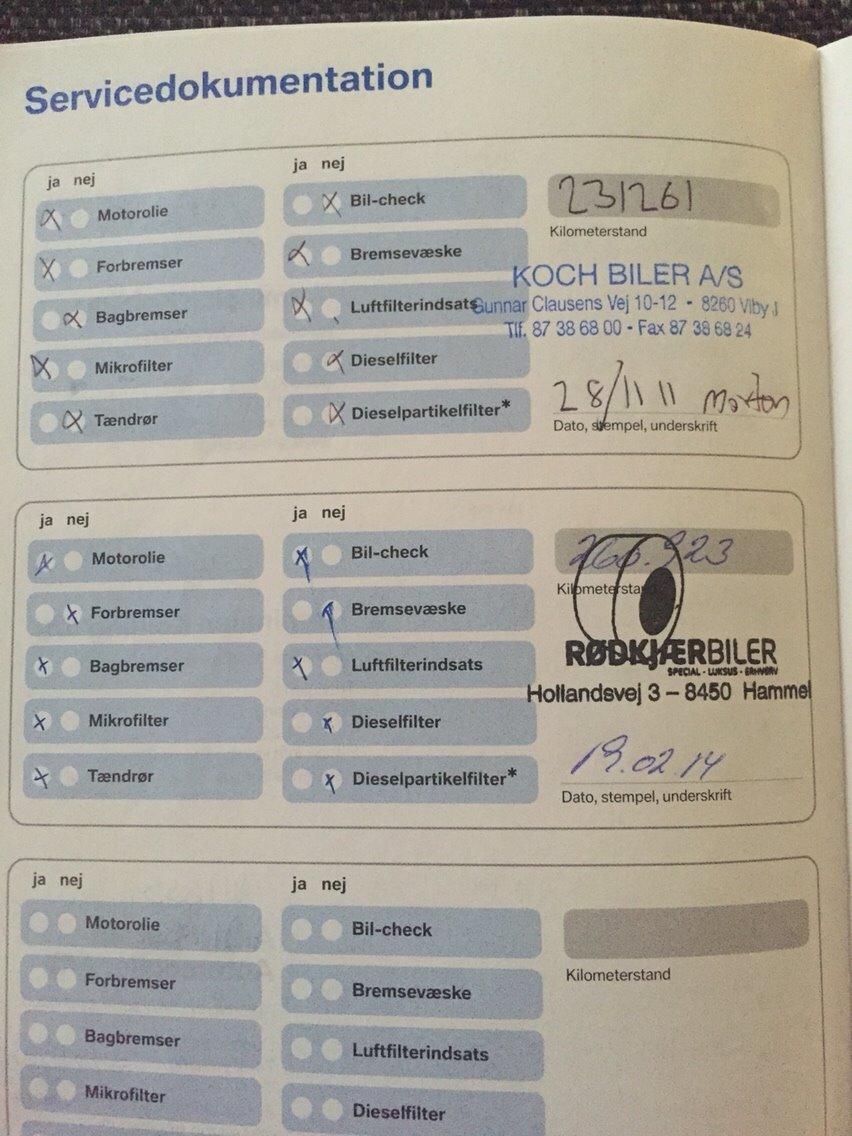 Servicedokumentation
ja nej
ja nej
Motorolie
Bil-check
231261
Kilometerstand
Forbremser
Bremsevæske
KOCH BILER A/S
Bagbremser
Luftfilterindsats
Gunnar Clausens Vej 10-12 - 8260 Viby J
Tlf. 87 38 68 00 - Fax 87 38 68 24
Mikrofilter
Dieselfilter
28/11 11 Morton
Tændrør
Dieselpartikelfilter*
Dato, stempel, underskrift
ja nej
ja nej
Motorolie
Bil-check
Kilometerstand
Forbremser
Bremsevæske
RØDKJÆRBILER
SPECIAL - LUKSUS - ERHVERV
Bagbremser
Luftfilterindsats
Hollandsvej 3 – 8450 Hammel
Mikrofilter
Dieselfilter
19.02.14
Tændrør
Dieselpartikelfilter*
Dato, stempel, underskrift
ja nej
ja nej
Motorolie
Bil-check
Kilometerstand
Forbremser
Bremsevæske
Bagbremser
Luftfilterindsats
Mikrofilter
Dieselfilter